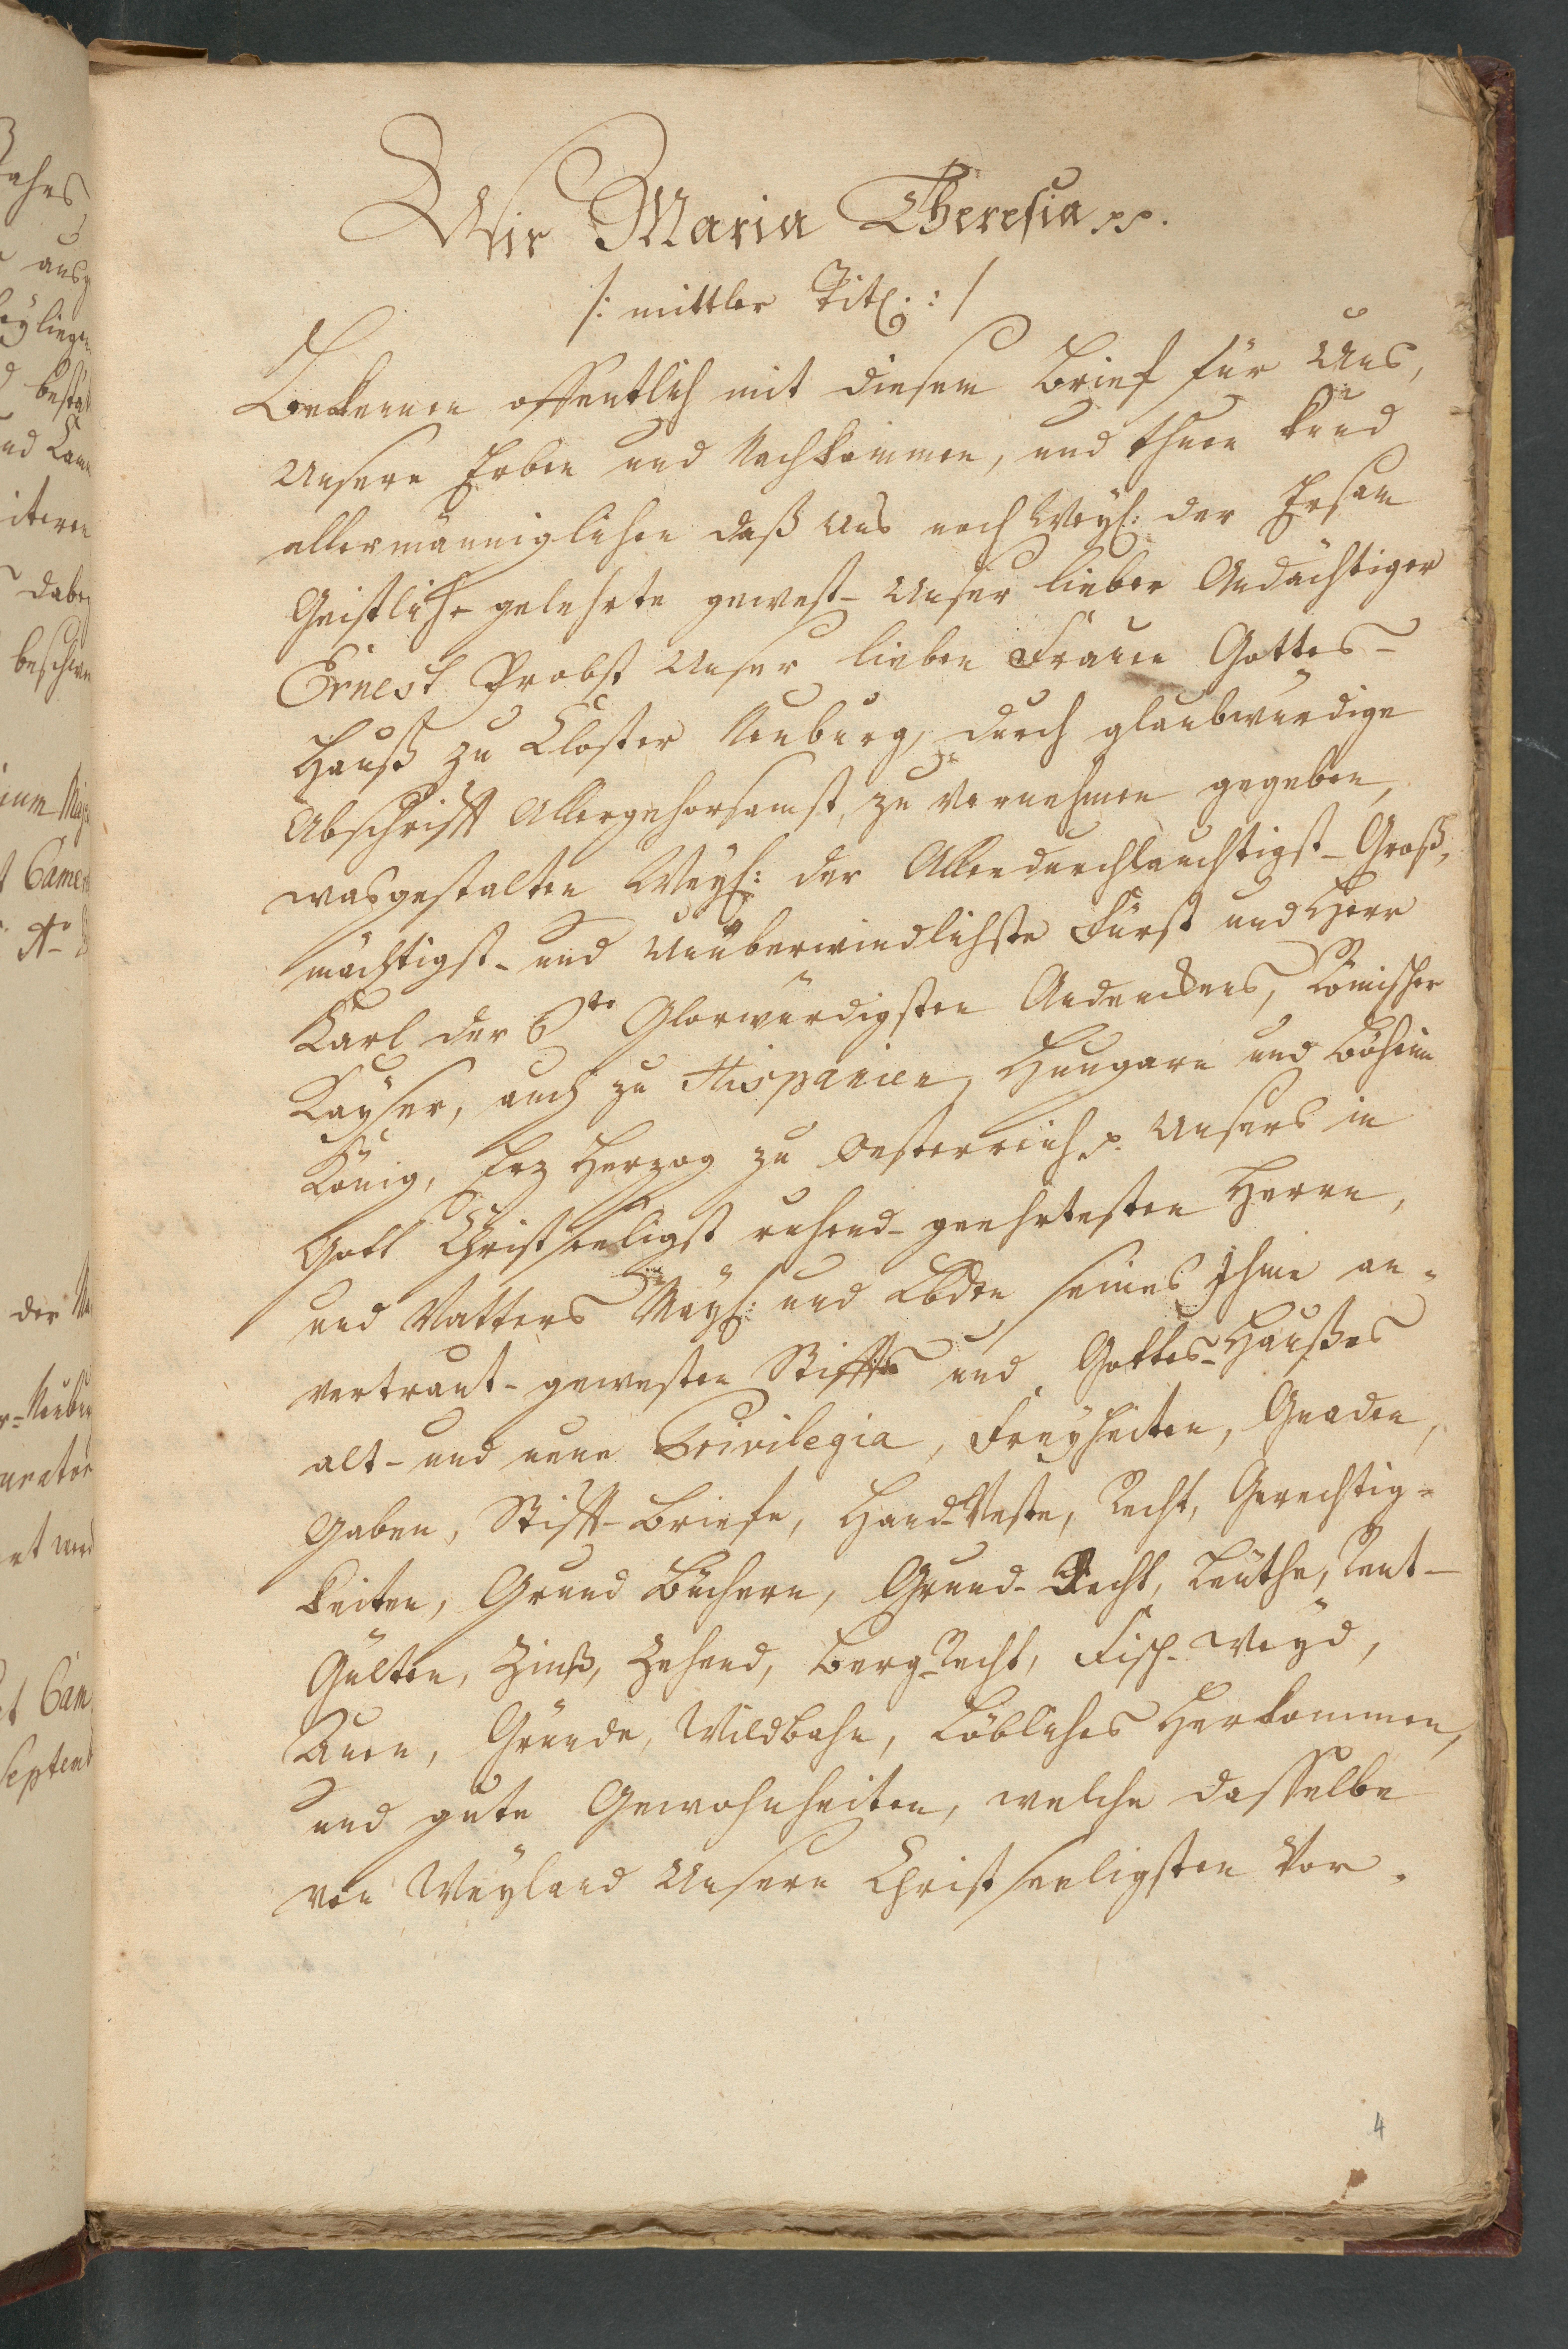 Wir Maria Theresia pp.
/: mittler Titl: :/
Bekennen offentlich mit diesem Brief für Uns,
Unsere Erben und Nachkommen, und thuen kund
allermänniglichen daß Uns noch Weyl: der Ersam
Geistlich- gelehrte gewest- Unser lieber Andächtiger
Ernest Probst Unser lieben Frauen Gottes-
Hauß zu Closter Neuburg, durch glaubwürdige
Abschrifft Allergehorsamst, zu vernehmen gegeben,
wasgestalten Weyl: der Allerdurchlauchtigst- Groß,
mächtigst- und Unüberwindlichste Fürst und Herr
Karl der 6te Glorwürdigsten Andenckens, Römischer
Kayser, auch zu Hispanien, Hungarn und Böheim
König, Erz Herzog zu Oesterreich p. Unsers in
Gott Christseeligst ruhend- geehrtesten Herrn,
und Vatters May: und Lbdn seines Ihme an-
vertraut- gewesten Stiffts und Gottes-Haußes
alt- und neue Privilegia, Freyheiten, Gnaden,
Gaben, Stifft-Briefe, Hand-Veste, Recht, Gerechtig-
keiten, Grund Büchern, Grund-Recht, Leuthe, Rent-
Gülten, Zinß, Zehend, Berg-Recht, Fisch-Weyd,
Auen, Gründe, Wildbahn, Löbliches Herkommen,
und gute Gewohnheiten, welche dasselbe
von Weyland Unsern Christseeligsten Vor-
4